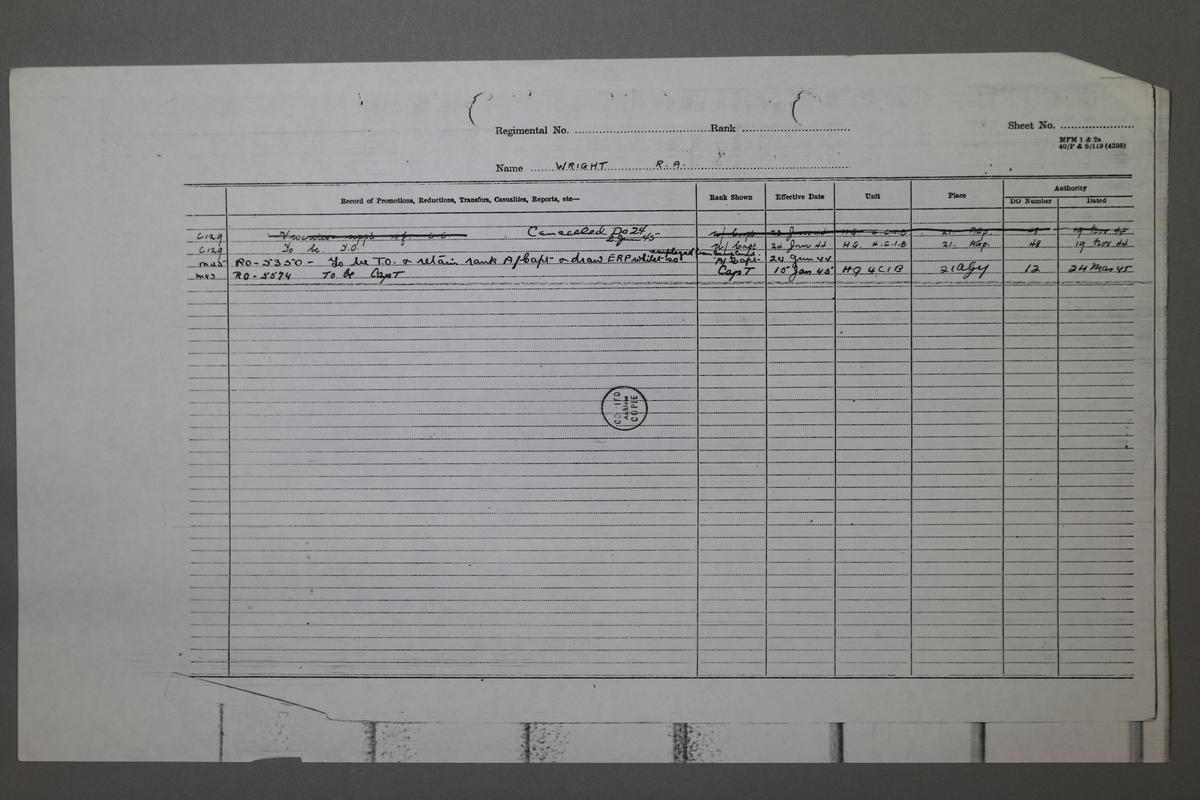 Regimental No. Rank Sheet No.
MFM 1 & 2a
40/P & S/119 (4398)
Name WRIGHT R.A.
Record of Promotions, Reductions, Transfers, Casualties, Reports, etc— Rank Shown Effective Date Unit Place Authority
DO Number Dated
C129 Cancelled DO 24 H.Q. 4.C.I.B 21. AGp. 48 19 Nov 44
2 Jun 45
C129 To be T.O. A/Capt 24 Jun 44 HQ. 4.C.I.B 21. AGp. 48 19 Nov 44
RO-5350 - To be T.O. & retain rank A/Capt & draw ERP whilst so A/Capt 24 Jun 44
RO-5574 To be Capt Capt 15 Jan 45 HQ 4CIB 21 AGp 12 24 Mar 45
Archives
COPIE